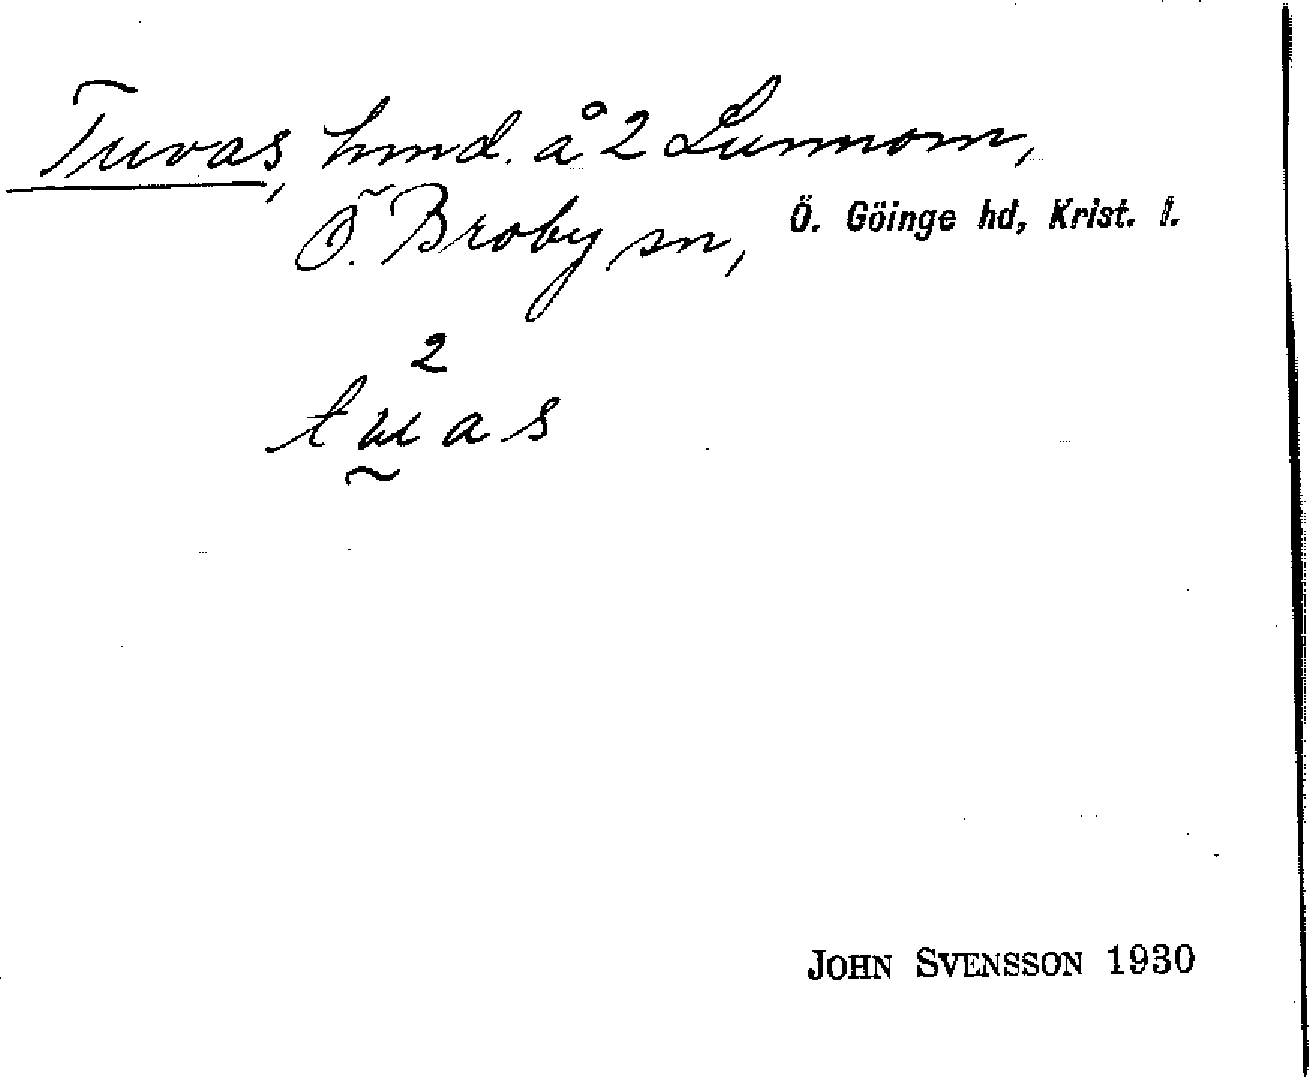 Tuvas, hmd. å 2 Lunnom,
Ö. Broby sn, Ö. Göinge hd, Krist. l.
2
tuas
JOHN SVENSSON 1930